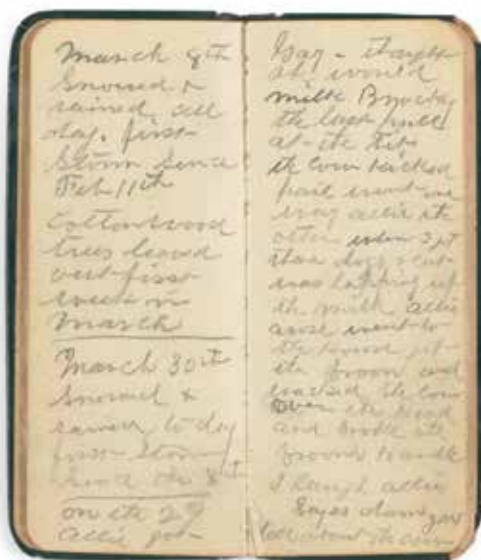 March 9th
Snowed &
rained all
day. first
Storm Since
Feb 11th
Cottonwood
trees leaved
out first
week in
March
March 30th
Snowed &
rained to day
first Storm
Since the 8th
on the 29
allie got
thought
would
milk
the last pull
at the tit
the cow kicked
pail went one
way allie the
other when I got
there dog & cat
was lapping up
the milk allie
arose went to
the house got
the broom and
the cow
Over the head
and broke the
broom handle
I laugh allie
Says
talk about the cow